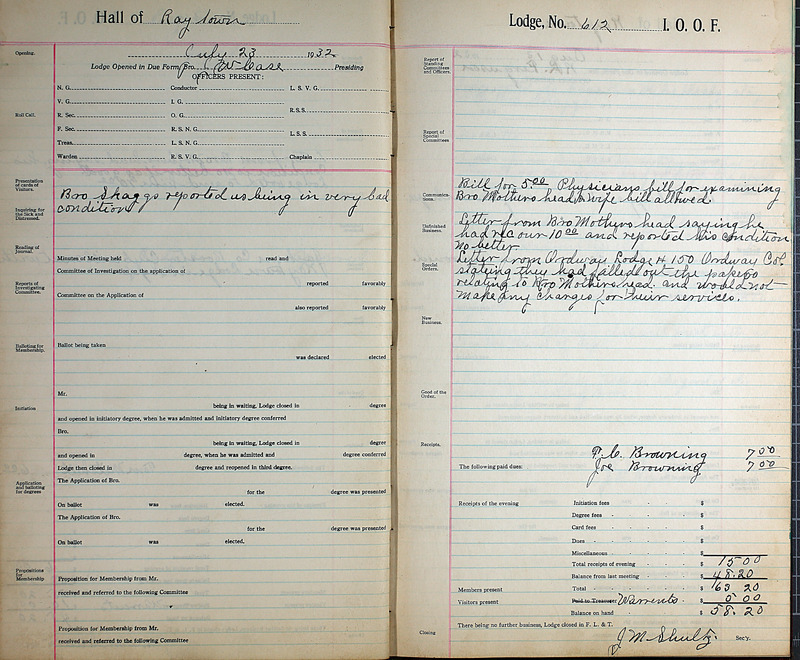 Hall of Raytown
Opening.
July 23 1932
Lodge Opened in Due Form, Bro. J W Case Presiding
OFFICERS PRESENT:
N. G. Conductor L. S. V. G.
V. G. I. G.
R. S. S.
Roll Call.
R. Sec. O. G.
F. Sec. R. S. N. G.
L. S. S.
Treas. L. S. N. G.
Warden R. S. V. G. Chaplain
Presentation of cards of Visitors.
Bro Skaggs reported as being in very bad
condition
Inquiring for the Sick and Distressed.
Reading of Journal.
Minutes of Meeting held read and
Committee of Investigation on the application of
Reports of Investigating Committee.
reported favorably
Committee on the Application of
also reported favorably
Balloting for Membership.
Ballot being taken
was declared elected
Mr.
Initiation
being in waiting, Lodge closed in degree
and opened in initiatory degree, when he was admitted and initiatory degree conferred
Bro.
being in waiting, Lodge closed in degree
and opened in degree, when he was admitted and degree conferred
Lodge then closed in degree and reopened in third degree.
Application and balloting for degrees
The Application of Bro.
for the degree was presented
On ballot was elected.
The Application of Bro.
for the degree was presented
On ballot was elected.
Propositions for Membership
Proposition for Membership from Mr.
received and referred to the following Committee
Proposition for Membership from Mr.
received and referred to the following Committee
Lodge, No. 612 I. O. O. F.
Report of Standing Committees and Officers.
Report of Special Committees
Communications.
Bill for 5.00 Physicians bill for examining
Bro Mothershead & wife bill allowed.
Unfinished Business.
Letter from Bro Mothershead saying he
had rec our 10 00 and reported his condition
no better
Special Orders.
Letter from Ordway Lodge # 150 Ordway Col.
stating they had filled out the papers
relating to Bro Mothershead. and would not
make any charges for their services.
New Business.
Good of the Order.
Receipts.
P. C. Browning 7 00
The following paid dues: Joe Browning 7 00
Receipts of the evening Initiation fees $
Degree fees $
Card fees $
Dues $
Miscellaneous $
Total receipts of evening $ 15 00
Balance from last meeting $ 48.20
Members present Total $ 63 20
Visitors present Paid to Treasurer Warrents $ 5 00
Balance on hand $ 58. 20
There being no further business, Lodge closed in F. L. & T.
Closing J M Shultz Sec'y.